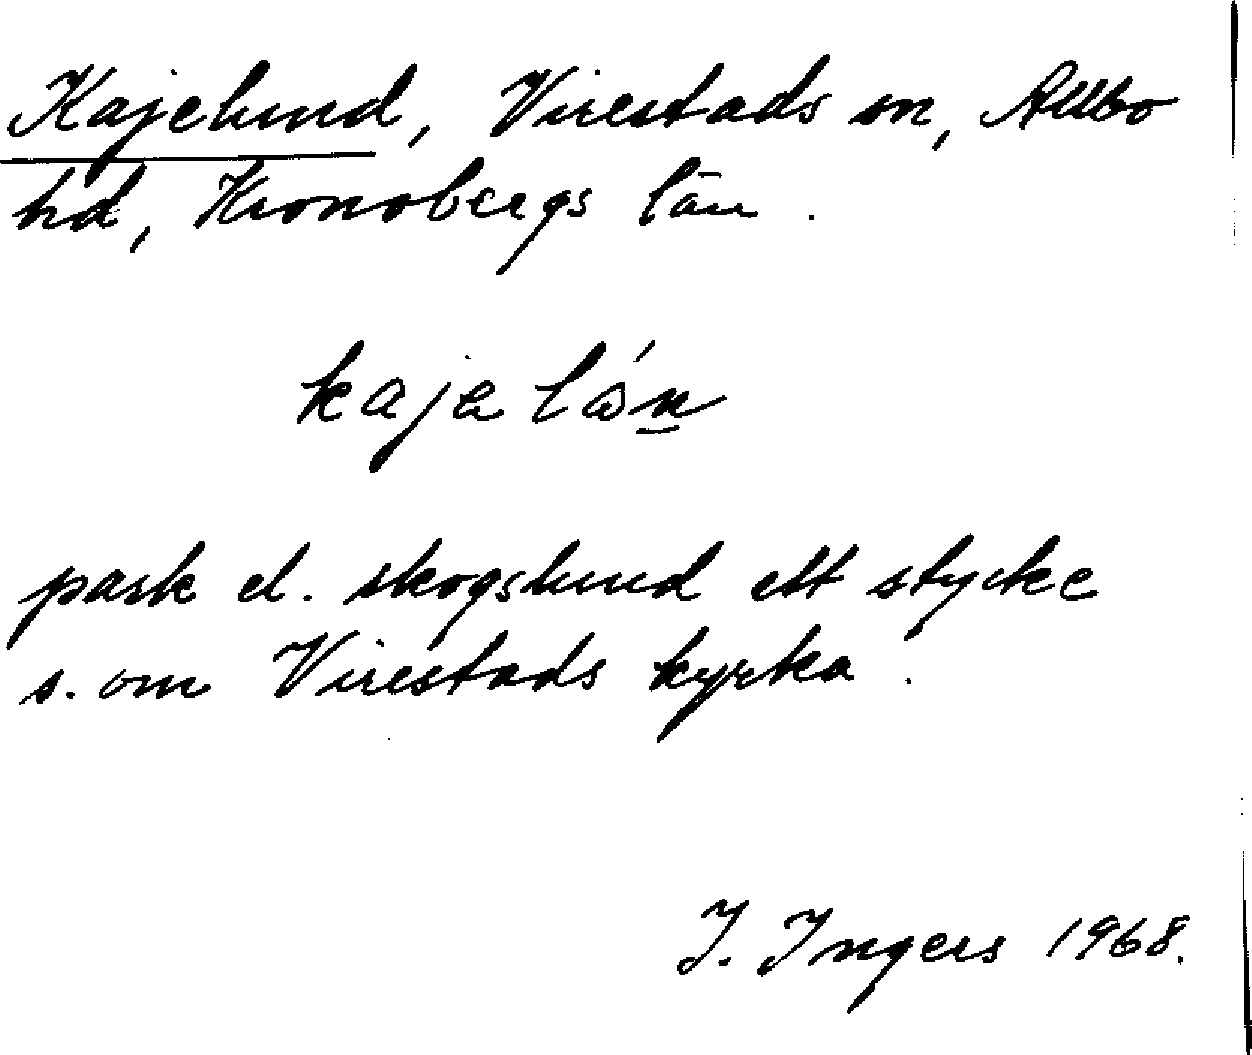 Kajelund, Virestads sn, Allbo
hd, Kronobergs län.
park el. skogslund ett stycke
s. om Virestads kyrka.
I. Ingers 1968.